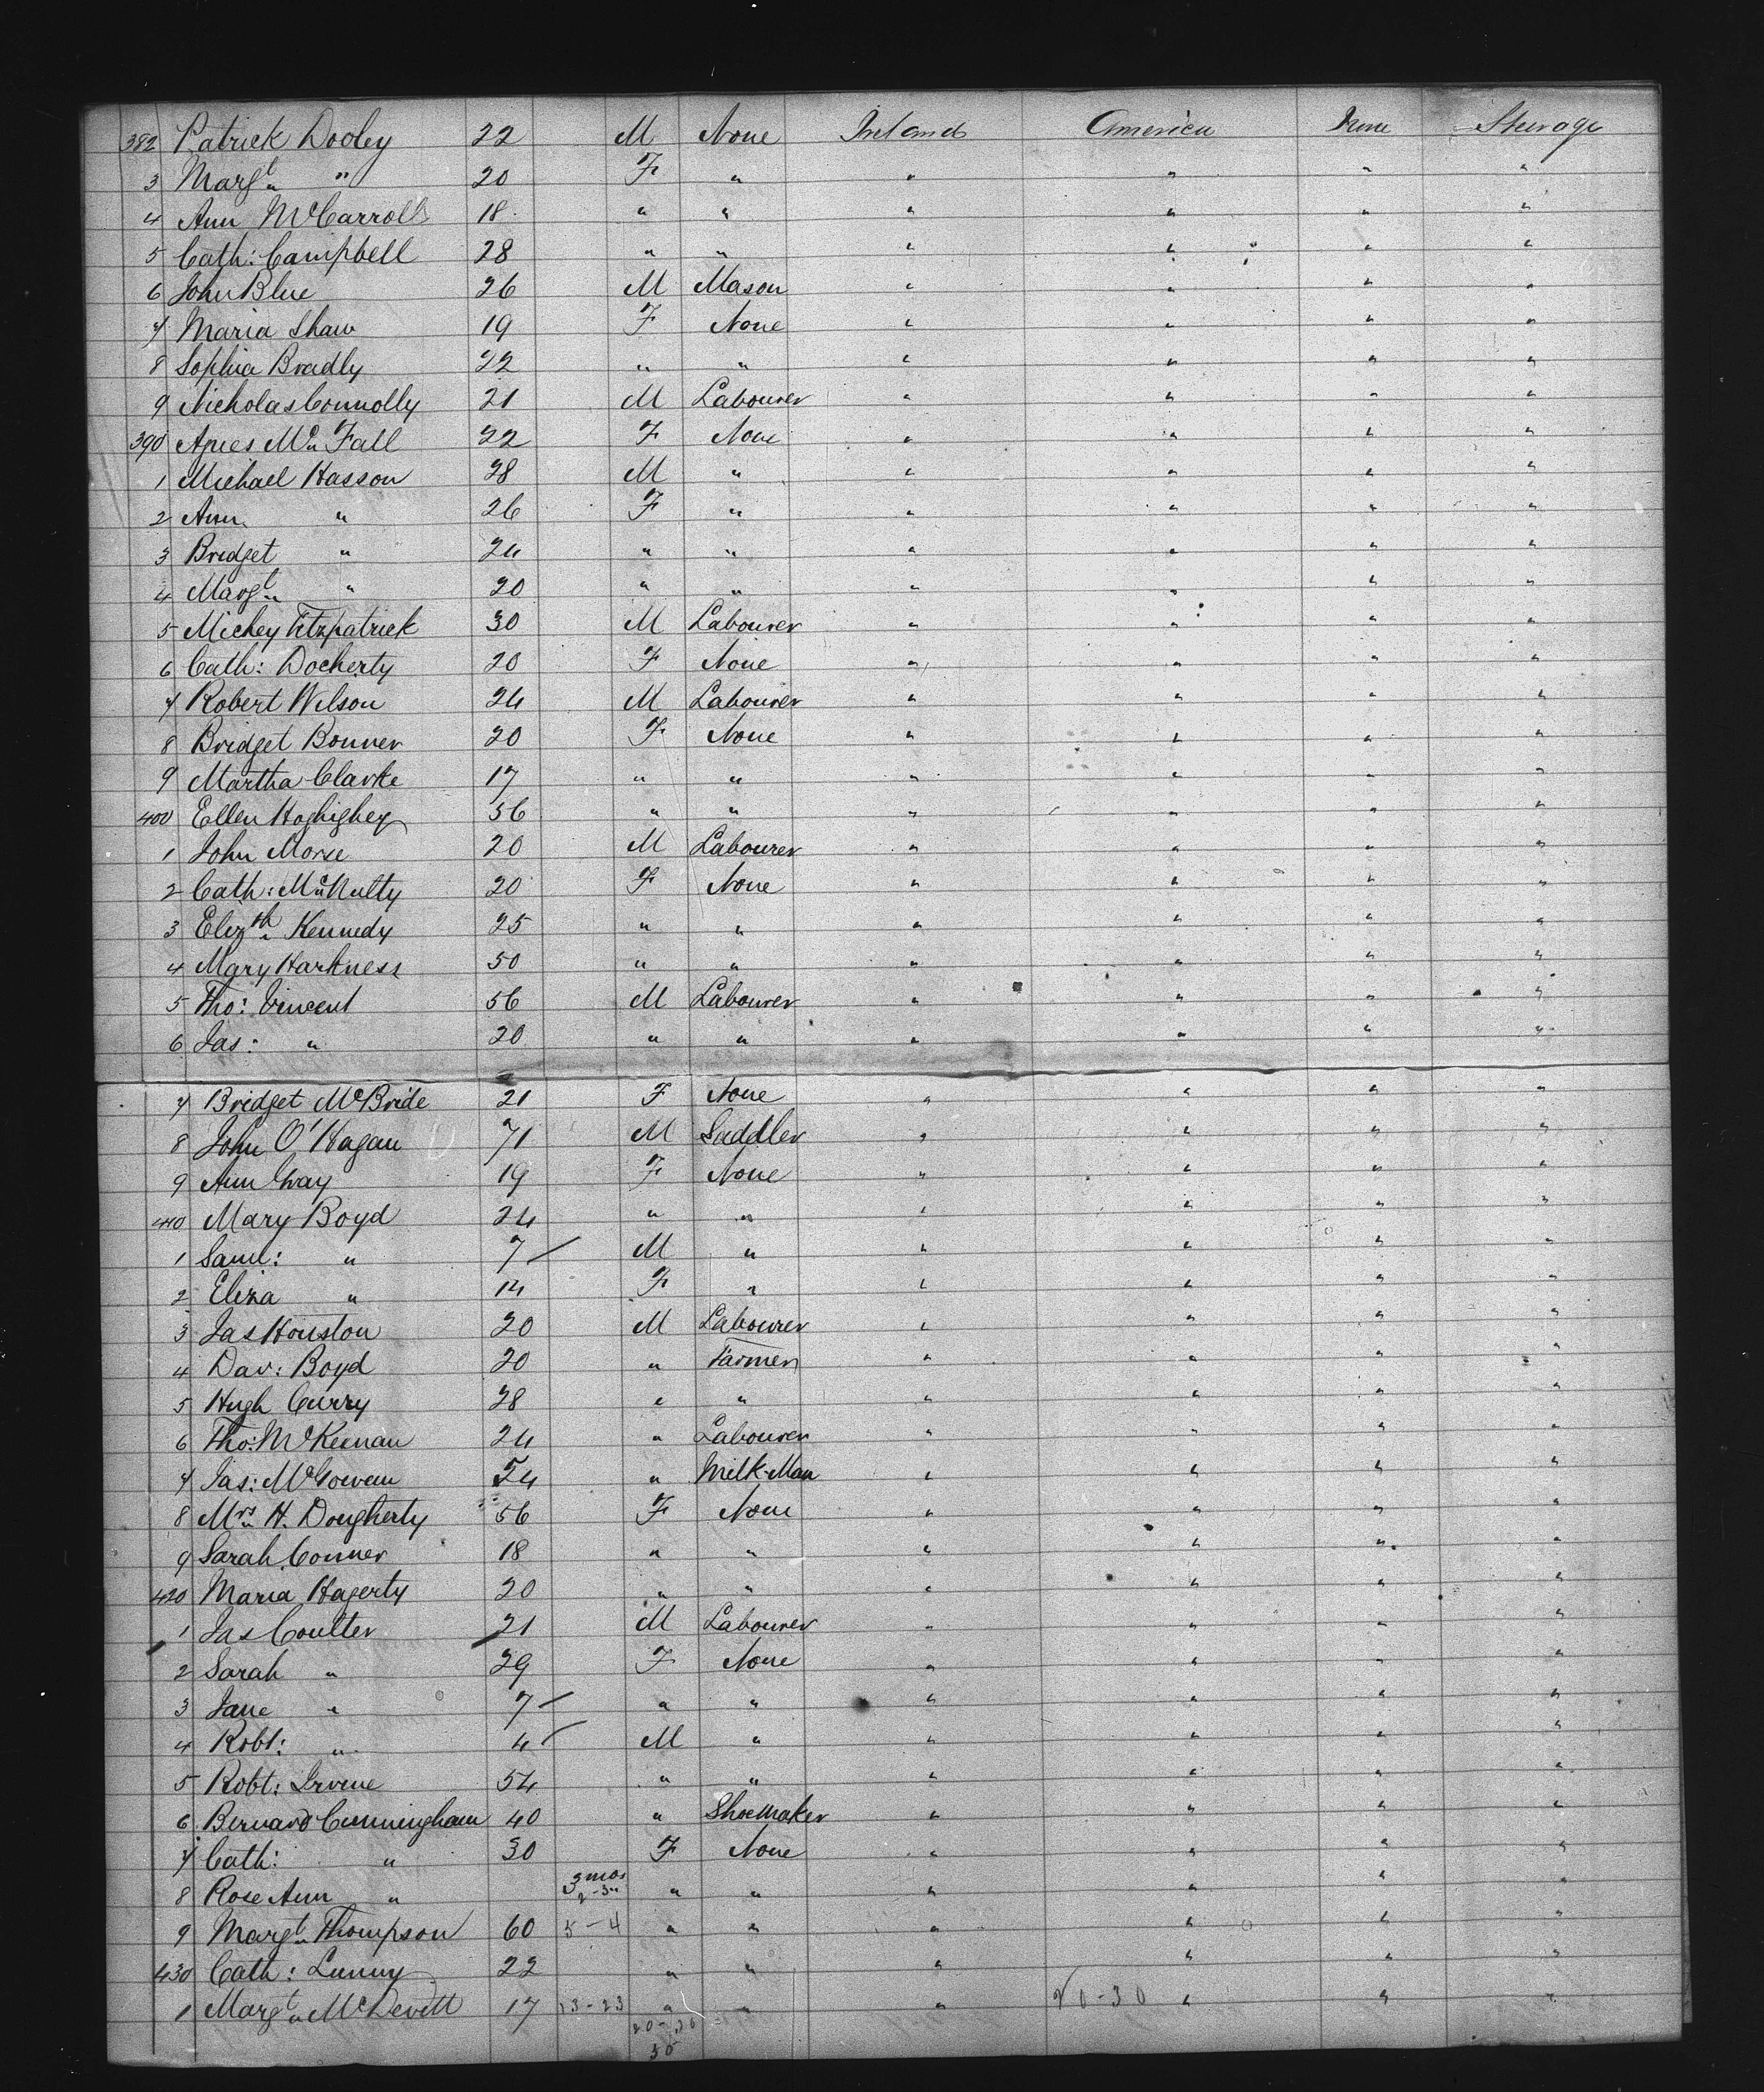 382 Patrick Dooley 22 M None Ireland America None Steerage
3 Margt " 20 F " " " " "
4 Ann McCarroll 18 " " " " " "
5 Cath: Campbell 28 " " " " " "
6 John Blue 26 M Mason " " " "
7 Maria Shaw 19 F None " " " "
8 Sophia Bradly 22 " " " " " "
9 Nicholas Connolly 21 M Labourer " " " "
390 Agnes Mc Fall 22 F None " " " "
1 Michael Hasson 28 M " " " " "
2 Ann " 26 F " " " " "
3 Bridget " 24 " " " " " "
4 Margt " 20 " " " " " "
5 Mickey Fitzpatrick 30 M Labourer " " " "
6 Cath: Docherty 20 F None " " " "
7 Robert Wilson 24 M Labourer " " " "
8 Bridget Bonner 20 F None " " " "
9 Martha Clarke 17 " " " " " "
400 Ellen 56 " " " " " "
1 John Morse 20 M Labourer " " " "
2 Cath: McNulty 20 F None " " " "
3 Elizth Kennedy 25 " " " " " "
4 Mary Harkness 50 " " " " " "
5 Tho: Vincent 56 M Labourer " " " "
6 Jas: " 20 " " " " " "
7 Bridget McBride 21 F None " " " "
8 John O'Hagan 71 M Saddler " " " "
9 Ann Gray 19 F None " " " "
410 Mary Boyd 24 " " " " " "
1 Saml: " 7 M " " " " "
2 Eliza " 14 F " " " " "
3 Jas Houston 20 M Labourer " " " "
4 Dav: Boyd 20 " Farmer " " " "
5 Hugh Curry 28 " " " " " "
6 Tho: McKeenan 24 " Labourer " " " "
7 Jas: McGowan 54 " Milk-Man " " " "
8 Mrs H. Dougherty 56 F None " " " "
9 Sarah Conner 18 " " " " " "
420 Maria Hagerty 20 " " " " " "
1 Jas Coulter 21 M Labourer " " " "
2 Sarah " 29 F None " " " "
3 Jane " 7 " " " " " "
4 Robt: " 4 M " " " " "
5 Robt: Irvine 54 " " " " " "
6 Bernard Cunningham 40 " Shoemaker " " " "
7 Cath: " 30 F None " " " "
8 Rose Ann " 3 mos 2-3 " " " " " "
9 Margt Thompson 60 5-4 " " " " " "
430 Cath: Lunny 22 " " " " " "
1 Margt McDevitt 17 23-23 " " " 20-30 " " "
20-26
50